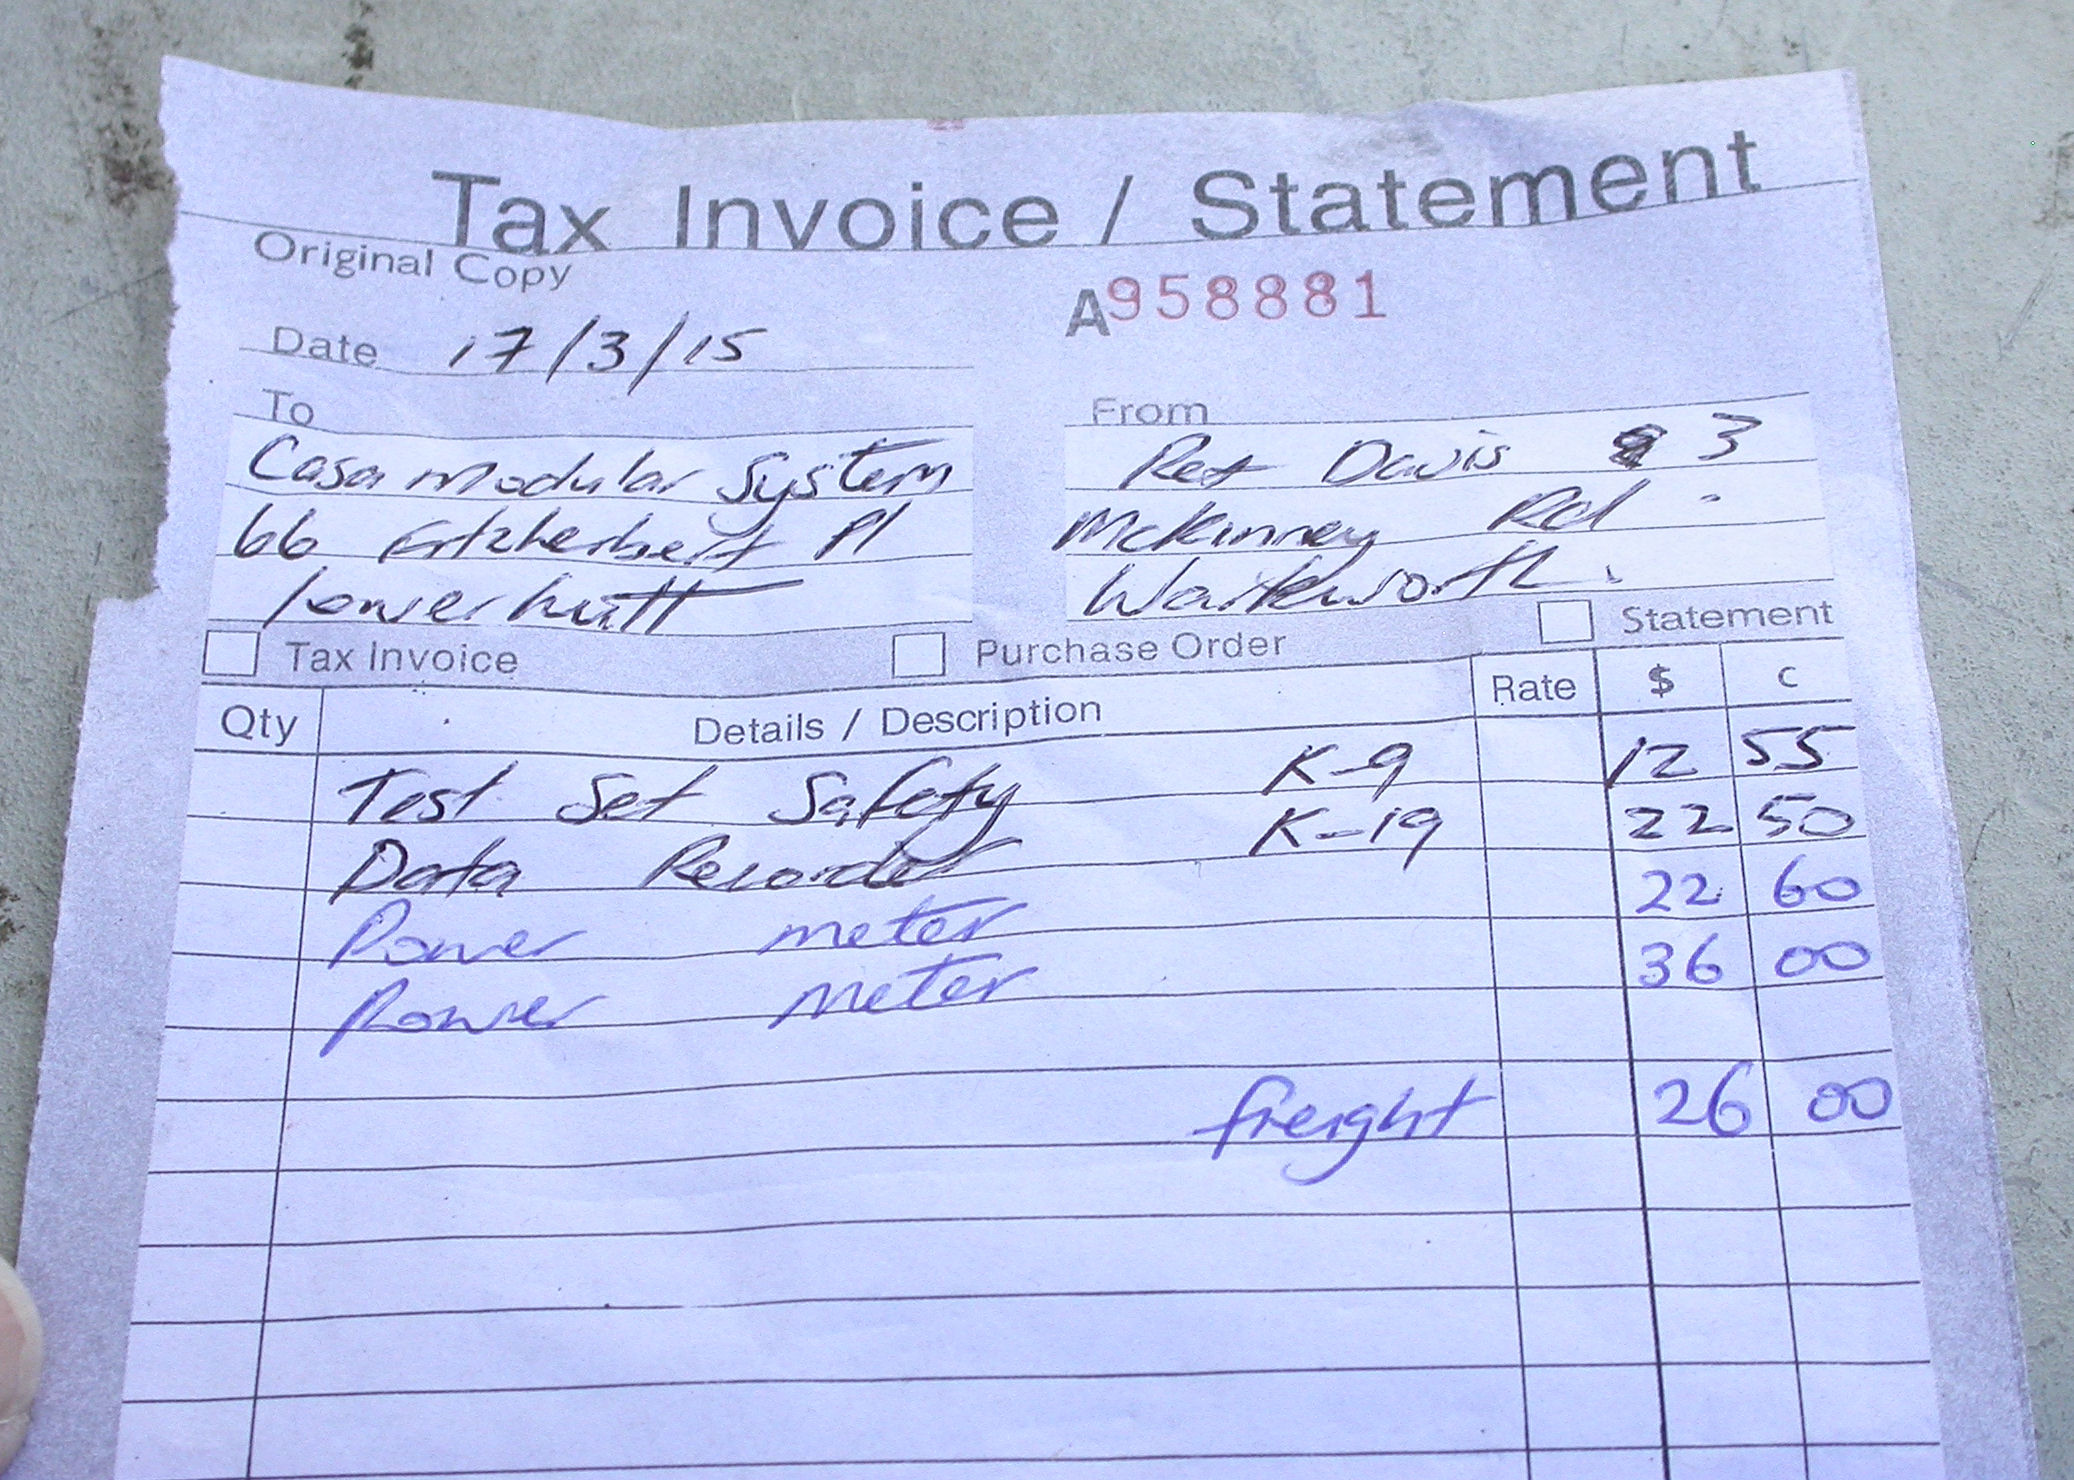 Tax Invoice / Statement
Original Copy
A958881
Date 17/3/15
To
Casa Modular System
66 Fitzherbert Pl
lower hutt
From
Davis 3
McKinney Rd
Warkworth.
Tax Invoice
Purchase Order
Statement
Qty Details / Description Rate $ c
Test Set Safety K-9 12 55
Data Recorder K-19 22 50
Power meter 22 60
Power meter 36 00
freight 26 00